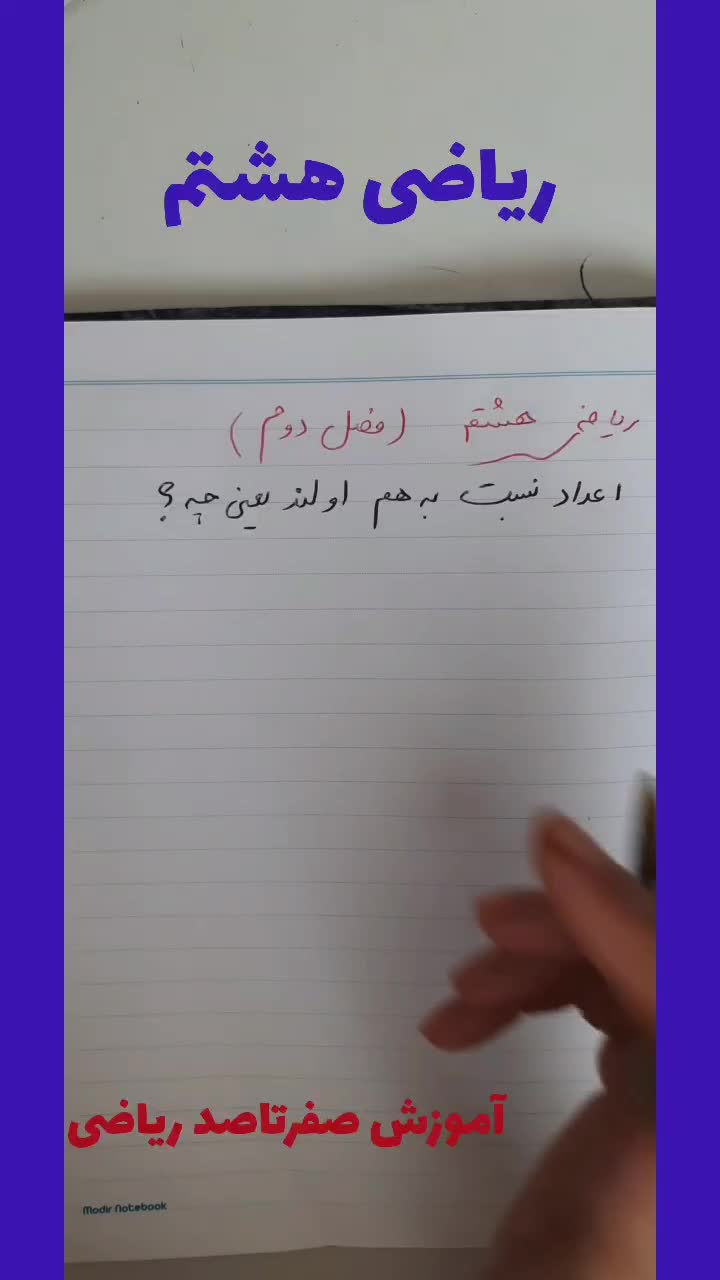 ریاضی هشتم
ریاضی هشتم (فصل دوم)
اعداد نسبت به هم اولند یعنی چه؟
آموزش صفرتاصد ریاضی
Modir Notebook